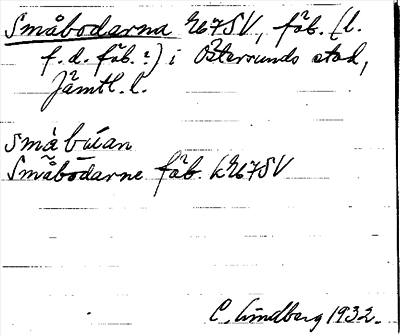 Småbodarna K67SV, fäb. (l.
f.d. fäb.?) i Östersunds stad,
Jämtl. l.
småbúan
Småbodarne fäb. k K67SV
C. Lindberg 1932.